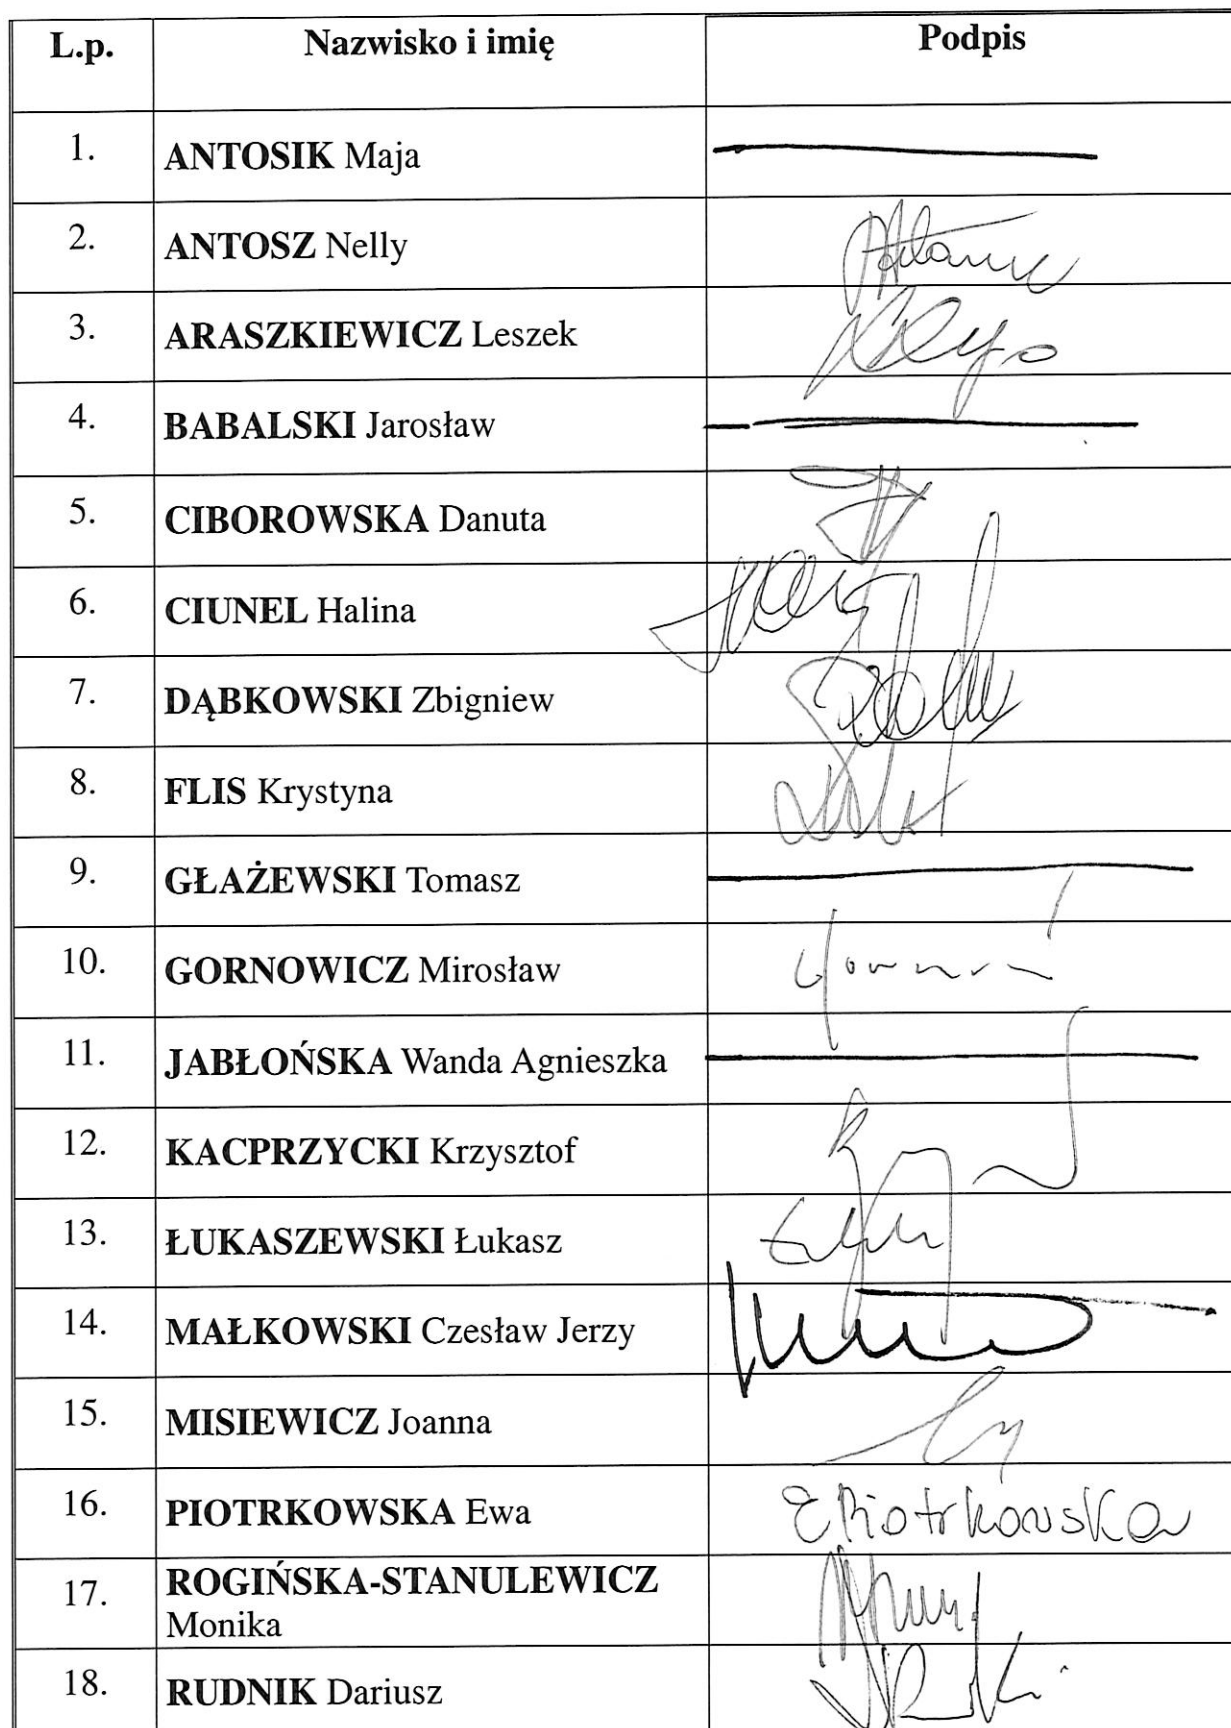 L.p. Nazwisko i imię Podpis
1. ANTOSIK Maja
2. ANTOSZ Nelly
3. ARASZKIEWICZ Leszek
4. BABALSKI Jarosław
5. CIBOROWSKA Danuta
6. CIUNEL Halina
7. DĄBKOWSKI Zbigniew
8. FLIS Krystyna
9. GŁAŻEWSKI Tomasz
10. GORNOWICZ Mirosław
11. JABŁOŃSKA Wanda Agnieszka
12. KACPRZYCKI Krzysztof
13. ŁUKASZEWSKI Łukasz
14. MAŁKOWSKI Czesław Jerzy
15. MISIEWICZ Joanna
16. PIOTRKOWSKA Ewa EPiotrkowska
17. ROGIŃSKA-STANULEWICZ
Monika
18. RUDNIK Dariusz